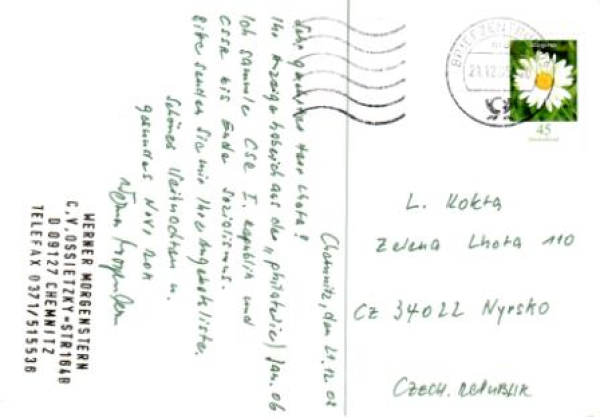 Chemnitz, den 21.12.08
Sehr geehrter Herr Lhota!
Ihr Anzeige habe ich aus der "philatelie" Jan. 06
Ich sammle CSR I. Republik und
CSSR bis Ende Sozialismus.
Bitte senden Sie mir Ihre Angebotsliste.
Schönes Weihnachten u.
gesundes Novo Rok
Werner Morgenstern
WERNER MORGENSTERN
C.V.OSSIETZKY-STR164B
D 09127 CHEMNITZ
TELEFAX 0371/515536
BRIEFZENTRUM
21.12
45
L. Kokta
Zelena Lhota 110
CZ 34022 Nyrsko
CZECH. REPUBLIK